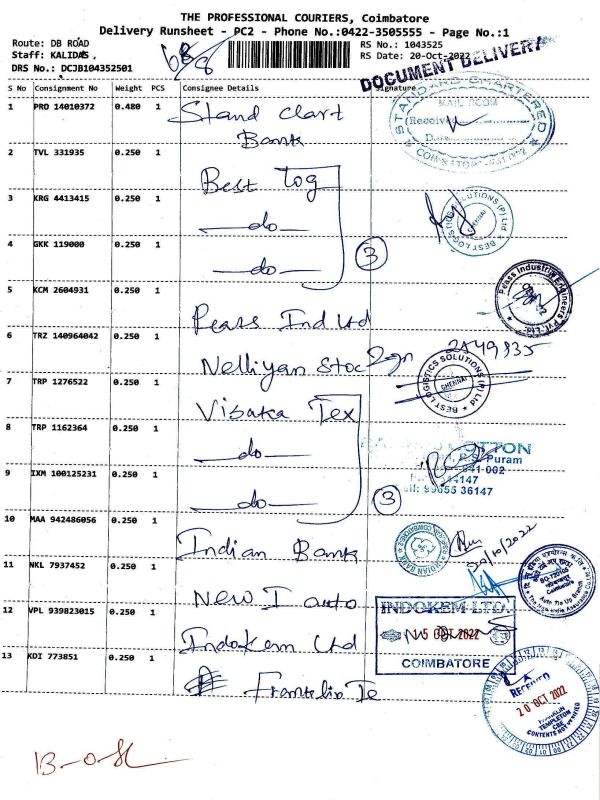 THE PROFESSIONAL COURIERS, Coimbatore
Delivery Runsheet - PC2 - Phone No.:0422-3505555 - Page No.:1
Route: DB ROAD
Staff: KALIDAS ,
DRS No.: DCJB104352501
RS No.: 1043525
RS Date: 20-Oct-2022
DOCUMENT DELIVERY
S No Consignment No Weight PCS Consignee Details Signature
1 PRO 14010372 0.480 1 Stand Chart Bank
STANDARD CHARTERED
MAIL ROOM
Date
2 TVL 331935 0.250 1 Best Log
3 KRG 4413415 0.250 1 —do—
BEST LOGISTICS SOLUTIONS (P) Ltd
CHENNAI
4 GKK 119000 0.250 1 —do— 3
5 KCM 2604931 0.250 1 Peass Ind Ltd
Peass Industrial Engineers Pvt. Ltd
6 TRZ 140964042 0.250 1 Nelliyan Stoc
7 TRP 1276522 0.250 1 Visaka Tex
BEST LOGISTICS SOLUTIONS (P) Ltd
CHENNAI
8 TRP 1162364 0.250 1 —do—
COTTON
Puram
641-002
99655 36147
9 IXM 100125231 0.250 1 —do— 3
10 MAA 942486056 0.250 1 Indian Bank
INDIAN BANK
20/10/2022
11 NKL 7937452 0.250 1 New I auto
12 VPL 939823015 0.250 1 Indokem Ltd
INDOKEM LTD.
15 OCT 2022
COIMBATORE
13 KDI 773851 0.250 1 Franklin Te
RECEIVED
20 OCT 2022
FRANKLIN
TEMPLETON
CBE
CONTENTS NOT VERIFIED